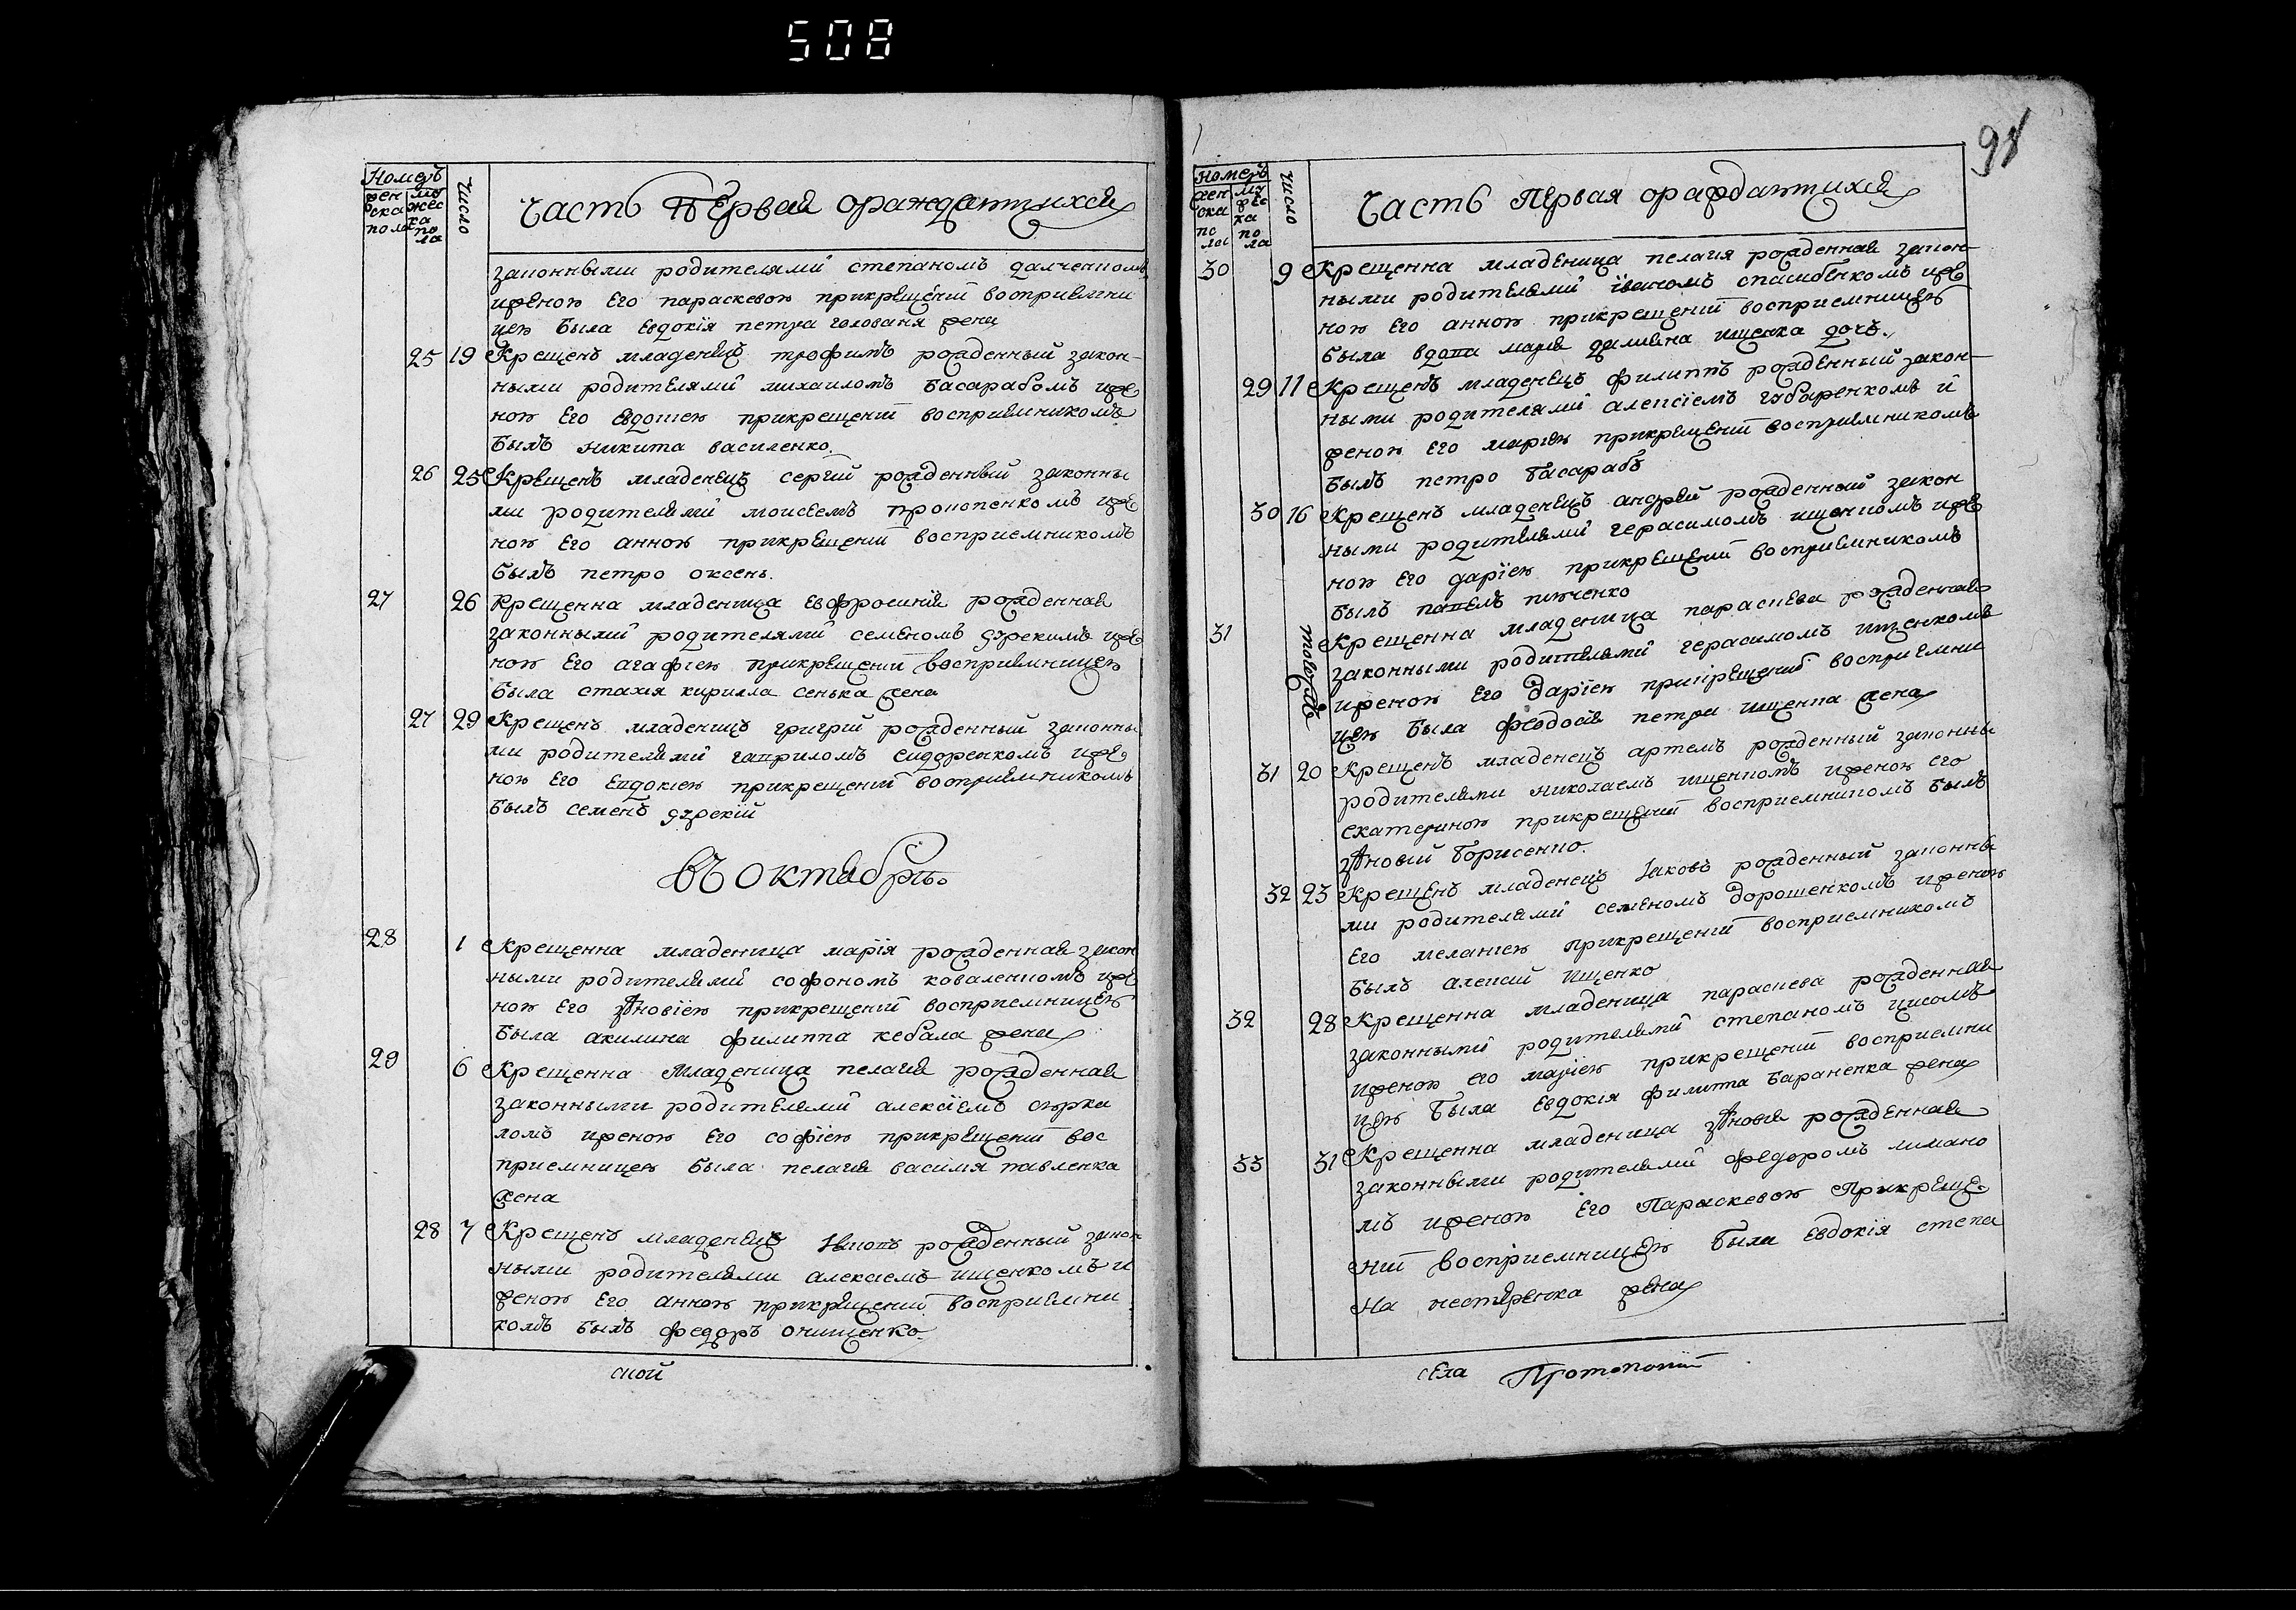 508
98
Номеръ
жен ска пола
му жес ка по ла
Число
Часть Первая ораждаштихся
законными родителями степаномъ
иженою его параскевою прикрещенїи восприемни
цею была евдокія петра голованя жена
25 19 Крещенъ младенецъ трофимъ рожденный закон-
ными родителями михаиломъ басарабомъ иже
ною его евдокіею прикрещеніи восприемникомъ
былъ никита василенко.
26 25 Крещенъ младенецъ сергій рожденный законны
ми родителями моисеемъ прокопенкомъ иже
ною его анною прикрещеніи восприемникомъ
былъ петро оксень.
27 26 Крещенна младеница евфросинія рожденная
законными родителями семеномъ иже
ною его агафіею прикрещеніи восприемницею
была стахія кирилла сенька жена
27 29 Крещенъ младенецъ григрій рожденный законны
ми родителями гавриломъ сидоренкомъ иже
ною его евдокіею прикрещеніи восприемникомъ
былъ семенъ
Въ октябрѣ.
28 1 Крещенна младеница марія рожденная закон
ными родителями софономъ коваленкомъ иже
ною его зѣновіею прикрещеніи восприемницею
была акилина филиппа кебала жена
29 6 Крещенна младеница пелагія рожденная
законными родителями алексіемъ
ломъ иженою его софіею прикрещеніи вос
приемницею была пелагія василя павленка
жена
28 7 Крещенъ младенецъ рожденный закон
ными родителями алексіемъ ищенкомъ и
женою его анною прикрещеніи восприемни
комъ былъ федоръ онищенко
ской
Номеръ
жен ска по ла
му жес ка по ла
Число
Часть Первая ораждаштихся
30 9 Крещенна младеница пелагія рожденная закон-
ными родителями иваномъ иже
ною его анною прикрещеніи восприемницею
была вдова марія даміяна ищенка дочь.
29 11 Крещенъ младенецъ филиппъ рожденный закон-
ными родителями алексіемъ губаренкомъ и
женою его маріею прикрещеніи восприемникомъ
былъ петро басарабъ
30 16 Крещенъ младенецъ андрей рожденный закон
ными родителями герасимомъ ищенкомъ иже
ною его даріею прикрещеніи восприемникомъ
былъ павелъ
31 тогожъ Крещенна младеница параскева рожденная
законными родителями герасимомъ ищенкомъ
иженою его даріею прикрещеніи восприемни
цею была феодосія петра ищенка жена
31 20 Крещенъ младенецъ артемъ рожденный законны
родителями николаемъ ищенкомъ иженою его
екатериною прикрещеніи восприемникомъ былъ
зѣновій борисенко.
32 23 Крещенъ младенецъ Іаковъ рожденный законны
ми родителями семеномъ дорошенкомъ иженою
его меланіею прикрещеніи восприемникомъ
былъ алексій ищенко
32 28 Крещенна младеница параскева рожденная
законными родителями степаномъ
иженою его маріею прикрещеніи восприемни
цею была евдокія филиппа бараненка жена
33 31 Крещенна младеница зѣновія рожденная
законными родителями федоромъ лимано
мъ иженою его Параскевою Прикреще-
ніи восприемницею была евдокія степа
на нестеренка жена
села Протопопив